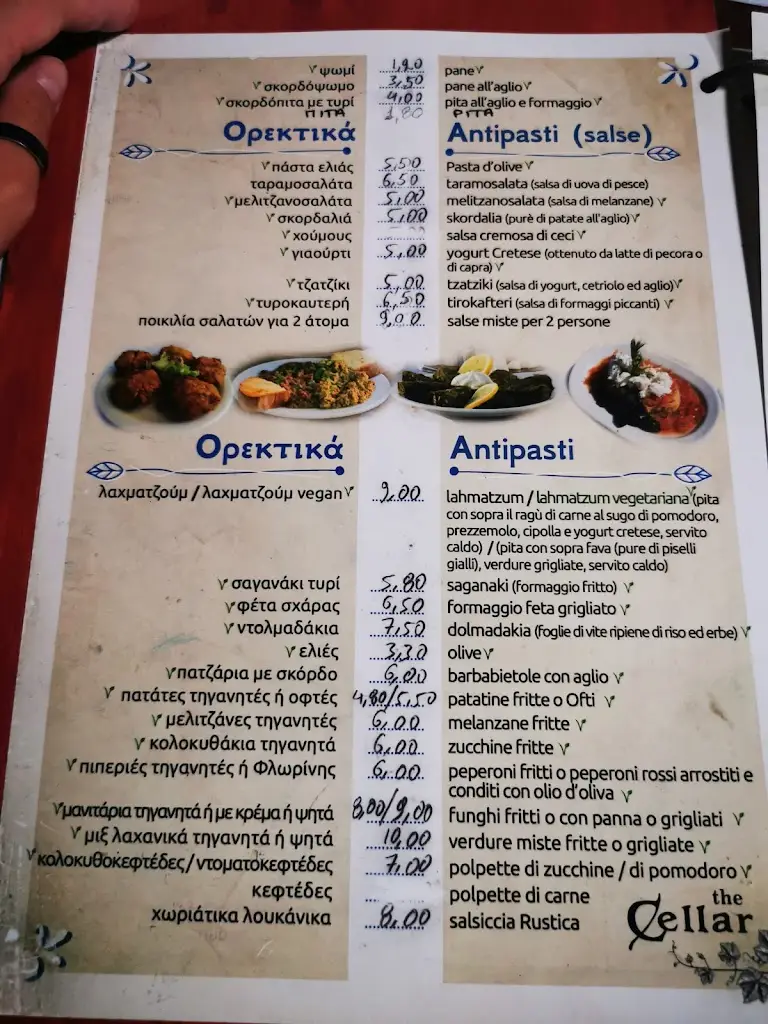 ψωμί 1,20 pane
σκορδόψωμο 3,50 pane all'aglio
σκορδόπιτα με τυρί 4,00 pita all'aglio e formaggio
ΠΙΤΑ 1,80 PITA
Ορεκτικά Antipasti (salse)
πάστα ελιάς 5,50 Pasta d'olive
ταραμοσαλάτα 6,50 taramosalata (salsa di uova di pesce)
μελιτζανοσαλάτα 5,00 melitzanosalata (salsa di melanzane)
σκορδαλιά 5,00 skordalia (purè di patate all'aglio)
χούμους salsa cremosa di ceci
γιαούρτι 5,00 yogurt Cretese (ottenuto da latte di pecora o
di capra)
τζατζίκι 5,00 tzatziki (salsa di yogurt, cetriolo ed aglio)
τυροκαυτερή 6,50 tirokafteri (salsa di formaggi piccanti)
ποικιλία σαλατών για 2 άτομα 9,00 salse miste per 2 persone
Ορεκτικά Antipasti
λαχματζούμ / λαχματζούμ vegan 9,00 lahmatzum / lahmatzum vegetariana (pita
con sopra il ragù di carne al sugo di pomodoro,
prezzemolo, cipolla e yogurt cretese, servito
caldo) / (pita con sopra fava (pure di piselli
gialli), verdure grigliate, servito caldo)
σαγανάκι τυρί 5,80 saganaki (formaggio fritto)
φέτα σχάρας 6,50 formaggio feta grigliato
ντολμαδάκια 7,50 dolmadakia (foglie di vite ripiene di riso ed erbe)
ελιές 3,30 olive
πατζάρια με σκόρδο 6,00 barbabietole con aglio
πατάτες τηγανητές ή οφτές 4,80/5,50 patatine fritte o Ofti
μελιτζάνες τηγανητές 6,00 melanzane fritte
κολοκυθάκια τηγανητά 6,00 zucchine fritte
πιπεριές τηγανητές ή Φλωρίνης 6,00 peperoni fritti o peperoni rossi arrostiti e
conditi con olio d'oliva
μανιτάρια τηγανητά ή με κρέμα ή ψητά 8,00/9,00 funghi fritti o con panna o grigliati
μιξ λαχανικά τηγανητά ή ψητά 10,00 verdure miste fritte o grigliate
κολοκυθοκεφτέδες/ ντοματοκεφτέδες 7,00 polpette di zucchine / di pomodoro
κεφτέδες polpette di carne
χωριάτικα λουκάνικα 8,00 salsiccia Rustica
the
Cellar